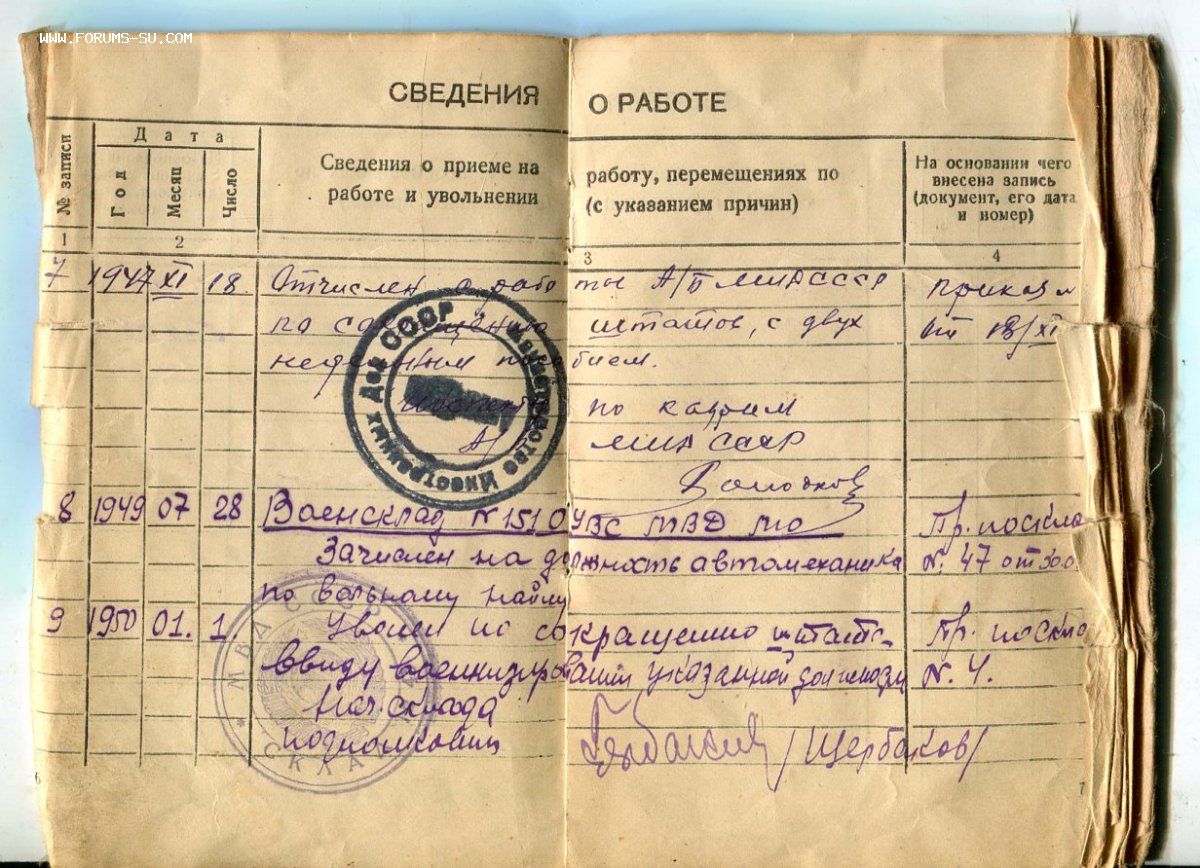 WWW.FORUMS-SU.COM
СВЕДЕНИЯ О РАБОТЕ
№ записи
Дата
Год
Месяц
Число
Сведения о приеме на работу, перемещениях по
работе и увольнении (с указанием причин)
На основании чего
внесена запись
(документ, его дата
и номер)
1 2 3 4
7 1947 XI 18 Отчислен с работы А/Б МИД СССР Приказ
по сокращению штатов, с двух от 18/XI
недельным пособием.
по кадрам
МИД СССР
8 1949 07 28 Военсклад N 151 Пр. по скла
Зачислен на должность автомеханика N. 47 от 30
по вольному найму
9 1950 01. 1. Уволен по сокращению штатов Пр. по скла
ввиду военизирования указанной должности N. 4.
Нач. склада
подполковник /Щербаков/
Министерство Иностранных Дел СССР
МВД СССР
СКЛАД
6
7